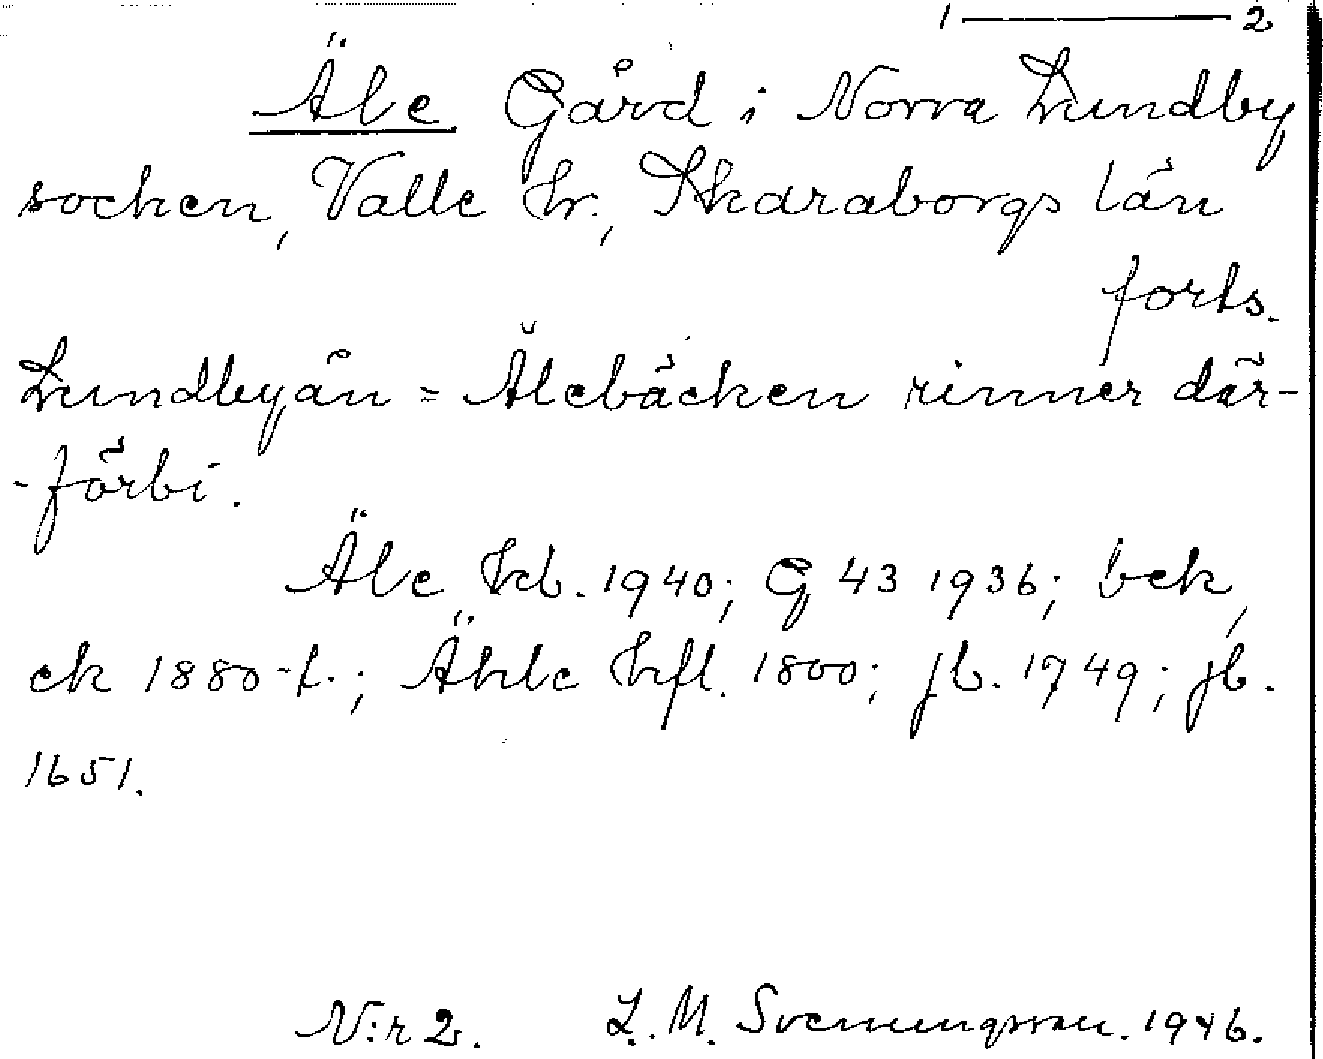 1 — 2
Äle Gård i Norra Lundby
socken, Valle hr., Skaraborgs län
forts.
Lundbyån = Älebäcken rinner där-
-förbi.
Äle kb. 1940; G 43 1936; bek,
ek 1880-t.; Ähle hfl. 1800; jb. 1749; jb.
1651.
N:r 2. L. M. Svenungsson. 1946.